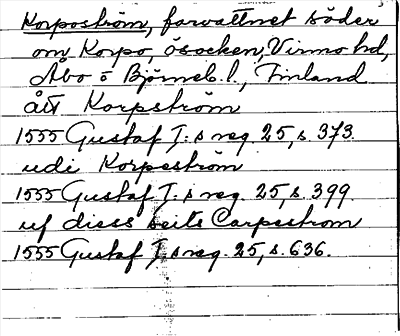 Korpoström, farvattnet söder
om Korpo, ösocken, Virmo hd,
Åbo o Björneb. l., Finland
ått Korpström
1555 Gustaf I:s reg. 25, s. 373.
udi Korpeström
1555 Gustaf I:s reg. 25, s. 399.
uf diess seits Carpestrom
1555 Gustaf I:s reg. 25, s. 636.